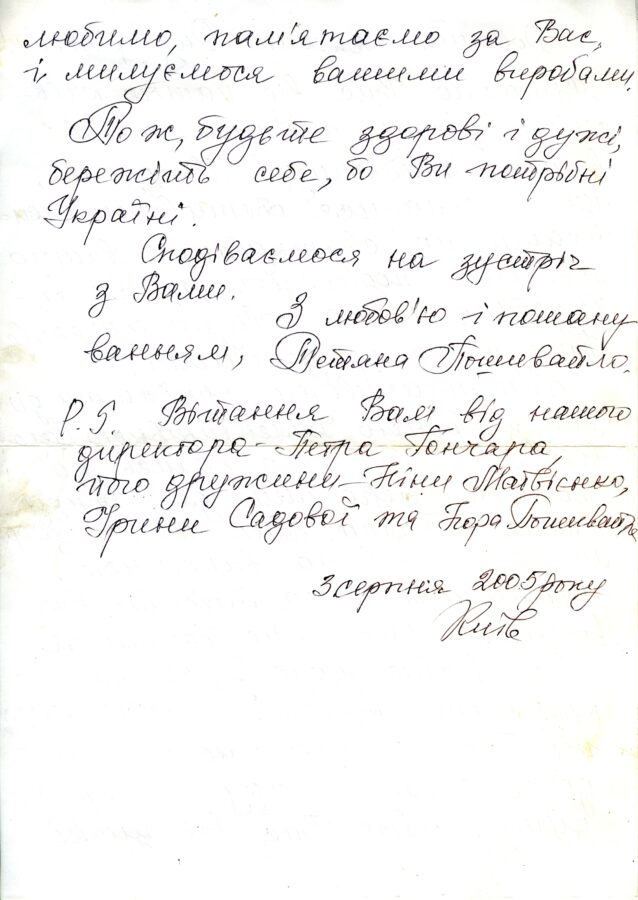 любимо, пам'ятаємо за Вас,
і милуємося вашими виробами.
Тож, будьте здорові і дужі,
бережіть себе, бо Ви потрібні
Україні.
Сподіваємося на зустріч
з Вами.
З любов'ю і пошану
ванням, Тетяна Пошивайло.
P.S. Вітання Вам від нашого
директора - Петра Гончара,
його дружини - Ніни Матвієнко,
Ірини Садової та Ігора Пошивайла
3 серпня 2005 року
Київ